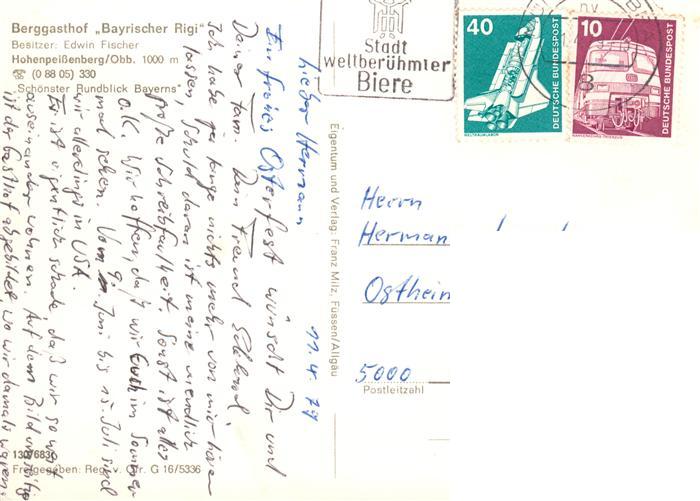 Berggasthof „Bayrischer Rigi"
Besitzer: Edwin Fischer
Hohenpeißenberg/Obb. 1000 m
☎ (0 88 05) 330
„Schönster Rundblick Bayerns"
Stadt
weltberühmter
Biere
40
DEUTSCHE BUNDESPOST
WELTRAUMLABOR
10
DEUTSCHE BUNDESPOST
NAHVERKEHRS-TRIEBZUG
Lieber Hermann 11.4.79
Ein frohes Osterfest wünscht Dir und
Deiner Fam. Dein Freund
Ich habe so lange nichts mehr von mir hören
lassen, Schuld daran ist meine unendlich
große Schreibfaulheit. Sonst ist alles
o.k. Wir hoffen, daß wir Euch im Sommer
mal sehen. Vom Juni bis 15. Juli sind
wir allerdings in USA.
Es ist eigentlich schade, daß wir so weit
auseinander wohnen. Auf dem Bild
ist der Gasthof abgebildet wo wir damals waren.
130/6836
Freigegeben: Reg. v. Obr. G 16/5336
Eigentum und Verlag: Franz Milz, Füssen/Allgäu
Herrn
Herman
Osthein
5000
Postleitzahl